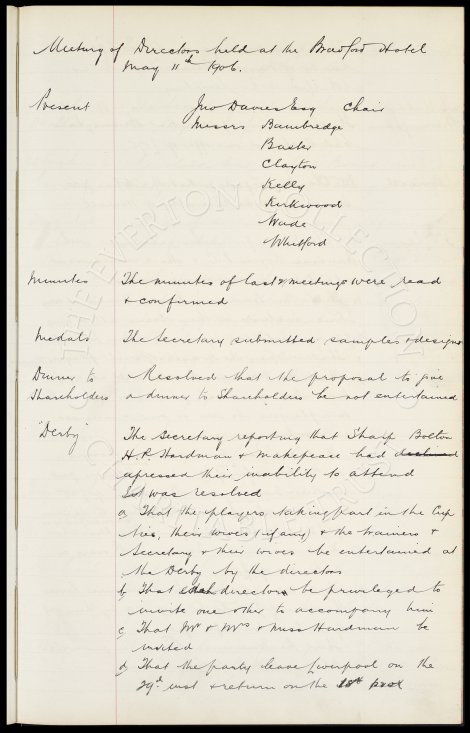 Meeting of Directors held at the Bradford Hotel
May 11th 1906.
Present Jno Davies Esq Chair
Messrs Bainbridge
Baxter
Clayton
Kelly
Kirkwood
Wade
Whitford
Minutes The minutes of last 2 meetings were read
& confirmed
Medals The Secretary submitted samples & designs
Dinner to Resolved that the proposal to give
Shareholders a dinner to Shareholders be not entertained
"Derby" The Secretary reporting that Sharp Bolton
H.P. Hardman & Makepeace had declined
expressed their inability to attend
It was resolved
a) That the players taking part in the Cup
ties, their wives (if any) & the trainers &
Secretary & their wives be entertained at
the Derby by the directors
b) That each director be privileged to
invite one other to accompany him
c) That Mr & Mrs & Miss Hardman be
invited
d) That the party leave Liverpool on the
29th inst & return on the
THE EVERTON COLLECTION
CHARITABLE TRUST